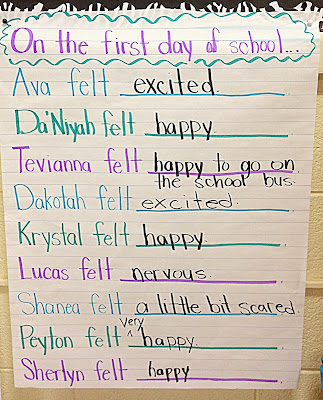 On the first day of school...
Ava felt excited.
Da'Niyah felt happy.
Tevianna felt happy to go on
the school bus.
Dakotah felt excited.
Krystal felt happy.
Lucas felt nervous.
Shanea felt a little bit scared.
Peyton felt very happy.
Sherlyn felt happy.